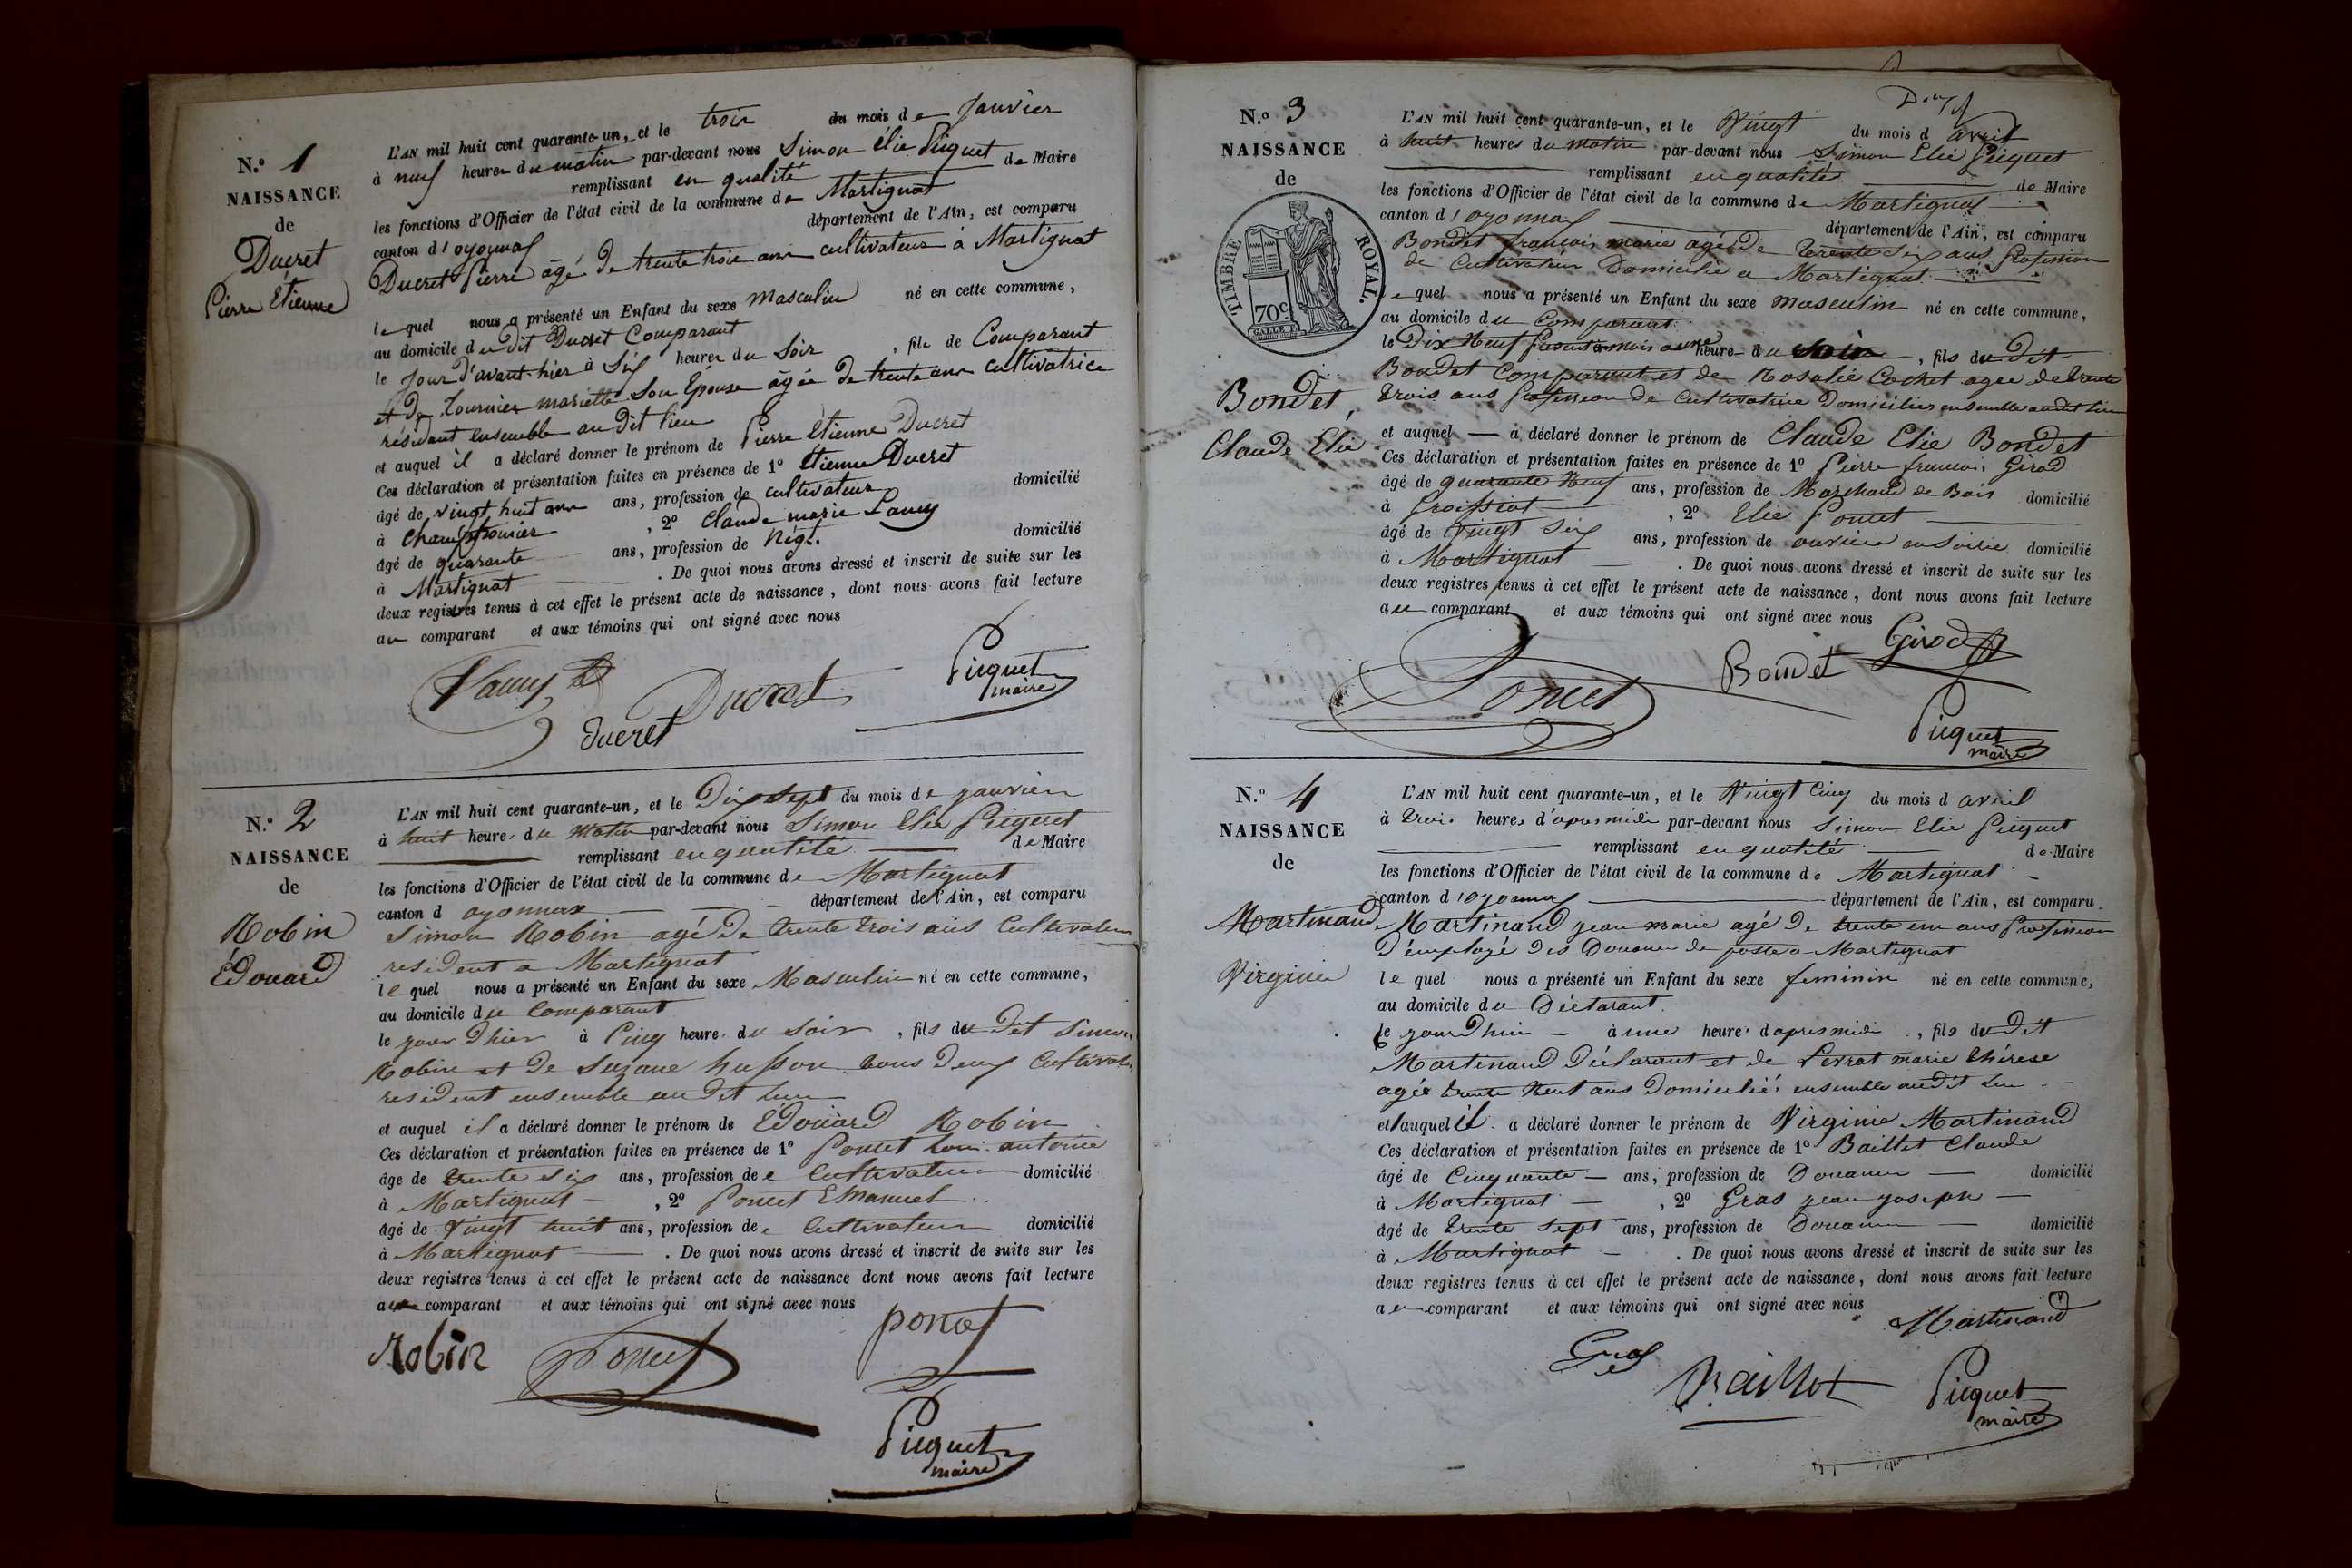 N.º 1
NAISSANCE
de
Ducret
Pierre Étienne
L'AN mil huit cent quarante-un, et le trois du mois de Janvier
à neuf heures du matin par-devant nous Simon Élie Picquet
remplissant en qualité de Maire
les fonctions d'Officier de l'état civil de la commune de Martignat
canton d'oyonnax département de l'Ain, est comparu
Ducret Pierre âgé de trente trois ans cultivateur à Martignat
le quel nous a présenté un Enfant du sexe masculin né en cette commune,
au domicile du dit Ducret Comparant
le jour d'avant-hier à Six heures du Soir, fils de Comparant
et de Tournier mariette Son Épouse âgée de trente ans cultivatrice
résidant ensemble au dit lieu
et auquel il a déclaré donner le prénom de Pierre Etienne Ducret
Ces déclaration et présentation faites en présence de 1º Etienne Ducret
âgé de vingt huit ans ans, profession de cultivateur domicilié
à Champfromier, 2º Claude marie Lancy
âgé de quarante ans, profession de Nég.t domicilié
à Martignat. De quoi nous avons dressé et inscrit de suite sur les
deux registres tenus à cet effet le présent acte de naissance, dont nous avons fait lecture
au comparant et aux témoins qui ont signé avec nous
Ducret
Picquet
maire
ducret
N.º 2
NAISSANCE
de
Robin
Édouard
L'AN mil huit cent quarante-un, et le Dix sept du mois de janvier
à huit heures du matin par-devant nous Simon Elie Picquet
remplissant en qualité de Maire
les fonctions d'Officier de l'état civil de la commune de Martignat
canton d oyonnax département de l'Ain, est comparu
Simon Robin agé de trente trois ans Cultivateur
resident a Martignat
le quel nous a présenté un Enfant du sexe Masculin né en cette commune,
au domicile du Comparant
le jour Dhier à Cinq heures du Soir, fils du Dit Simon
Robin et De Suzane husson tous Deux Cultivateurs
resident ensemble au dit lieu
et auquel il a déclaré donner le prénom de Édouard Robin
Ces déclaration et présentation faites en présence de 1º Poncet Louis antoine
âge de trente six ans, profession de Cultivateur domicilié
à Martignat, 2º Poncet Emanuel
âgé de Vingt huit ans, profession de Cultivateur domicilié
à Martignat. De quoi nous avons dressé et inscrit de suite sur les
deux registres tenus à cet effet le présent acte de naissance dont nous avons fait lecture
au comparant et aux témoins qui ont signé avec nous
Robin Poncet poncet
Picquet
maire
N.º 3
NAISSANCE
de
TIMBRE ROYAL.
70c
Bondet,
Claude Elie
L'AN mil huit cent quarante-un, et le Vingt du mois d avril
à huit heures du matin par-devant nous Simon Elie Picquet
remplissant en qualité de Maire
les fonctions d'Officier de l'état civil de la commune de Martignat
canton d'oyonnax département de l'Ain, est comparu
Bondet françois marie agé de trente six ans Profession
de Cultivateur Domicilié a Martignat
le quel nous a présenté un Enfant du sexe masculin né en cette commune,
au domicile du Comparant
le Dix Neuf Présent mois a une heure du soir, fils du Dit
Bondet Comparant et de Rosalie Cochet agee de trente
trois ans Profession de Cultivatrice Domiciliés ensemble audit lieu
et auquel a déclaré donner le prénom de Claude Elie Bondet
Ces déclaration et présentation faites en présence de 1º Pierre francois Girod
âgé de quarante Neuf ans, profession de Marchand de Bois domicilié
à Groissiat, 2º Elie Poncet
âgé de Vingt Six ans, profession de ouvrier en Soirie domicilié
à Martignat. De quoi nous avons dressé et inscrit de suite sur les
deux registres tenus à cet effet le présent acte de naissance, dont nous avons fait lecture
au comparant et aux témoins qui ont signé avec nous
Girod
Poncet Bondet
Picquet
maire
N.º 4
NAISSANCE
de
Martinand
Virginie
L'AN mil huit cent quarante-un, et le Vingt Cinq du mois d avril
à trois heures d'apres midi par-devant nous Simon Elie Picquet
remplissant en qualité de Maire
les fonctions d'Officier de l'état civil de la commune de Martignat
canton d'oyonnax département de l'Ain, est comparu
Martinand jean marie agé De trente un ans Profession
D'employé des Douanes de poste a Martignat
le quel nous a présenté un Enfant du sexe feminin né en cette commune,
au domicile du Déclarant
le jour Dhui à une heure d apres midi, fils du Dit
Martinand Déclarant et de Levrat marie thérese
agée trente Neuf ans Domiciliés ensemble audit lieu
et auquel il a déclaré donner le prénom de Virginie Martinand
Ces déclaration et présentation faites en présence de 1º Baillet Claude
âgé de Cinquante ans, profession de Douanier domicilié
à Martignat, 2º Gras jean joseph
âgé de trente sept ans, profession de Douanier domicilié
à Martignat. De quoi nous avons dressé et inscrit de suite sur les
deux registres tenus à cet effet le présent acte de naissance, dont nous avons fait lecture
au comparant et aux témoins qui ont signé avec nous
Martinand
Gras
Baillet
Picquet
maire